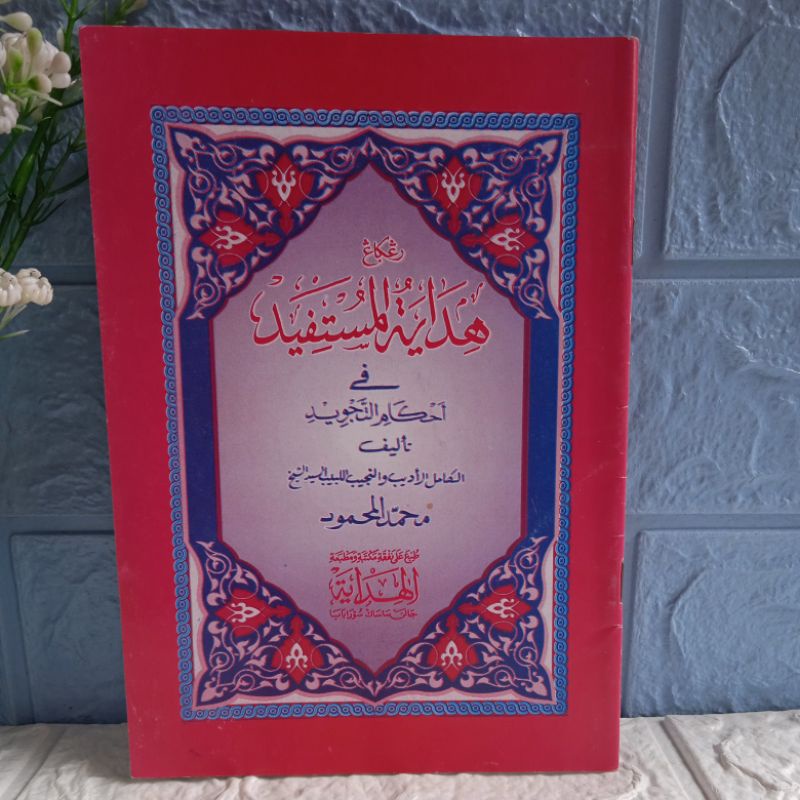 هِدَايَةُ المُسْتَفِيْد
في
أحكام التَّجْوِيدِ
تأليف
الكامل الأديب والنجيب اللبيب السيد الشيخ
محمّد المحمود
طبع على نفقة مكتبة ومطبعة
الهداية
جالن ساساك سورابايا